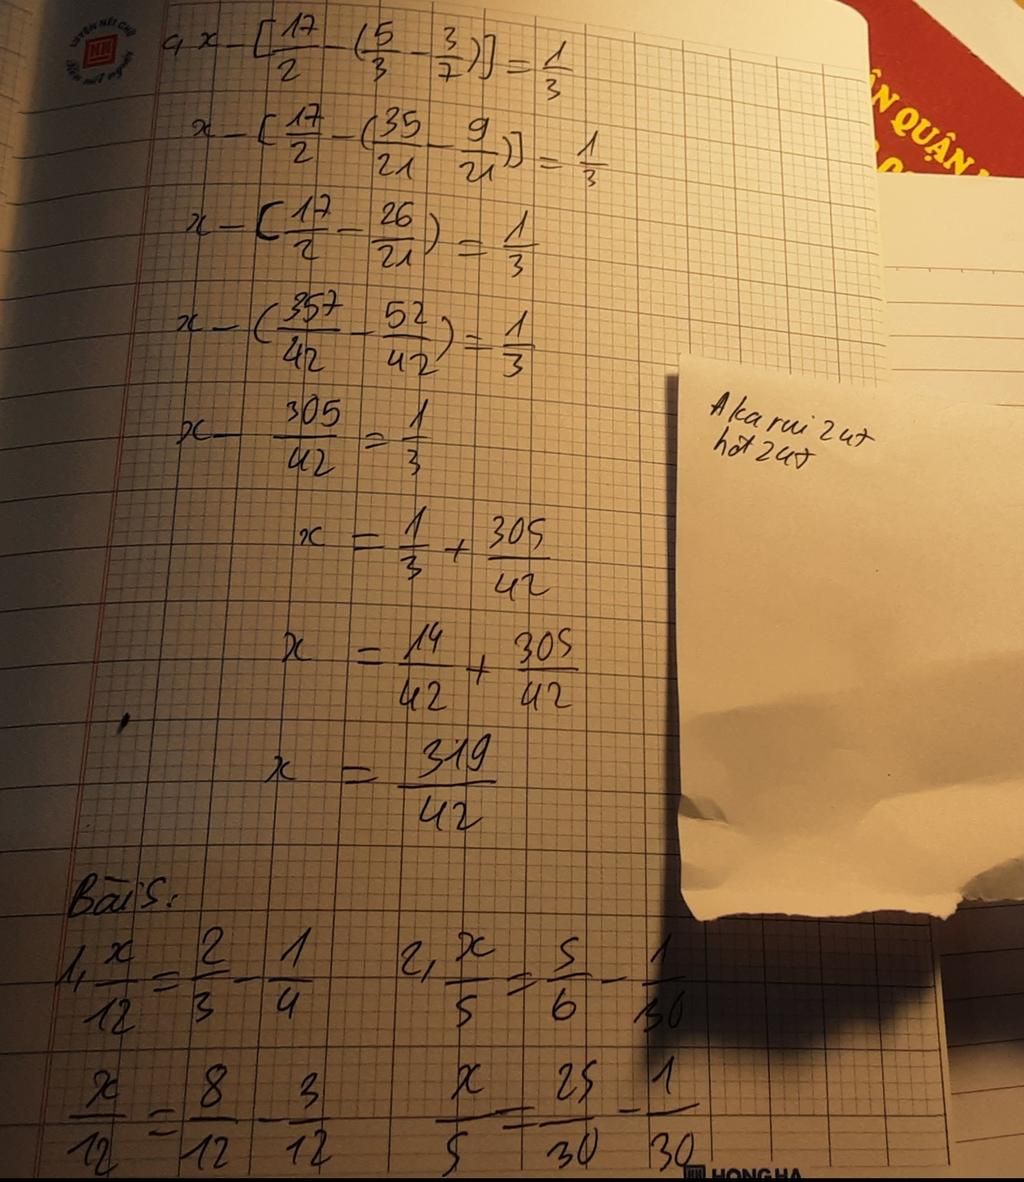 LUYỆN NÉT CHỮ
9, x - [17/2 - (5/3 - 3/7)] = 1/3
x - [17/2 - (35/21 - 9/21)] = 1/3
x - (17/2 - 26/21) = 1/3
x - (357/42 - 52/42) = 1/3
x - 305/42 = 1/3
x = 1/3 + 305/42
x = 14/42 + 305/42
x = 319/42
Bài 5:
1, x/12 = 2/3 - 1/4
2, x/5 = 5/6 - 1/30
x/12 = 8/12 - 3/12
x/5 = 25/30 - 1/30
HONG HA
Akarui zut
hot zut
QUẬN